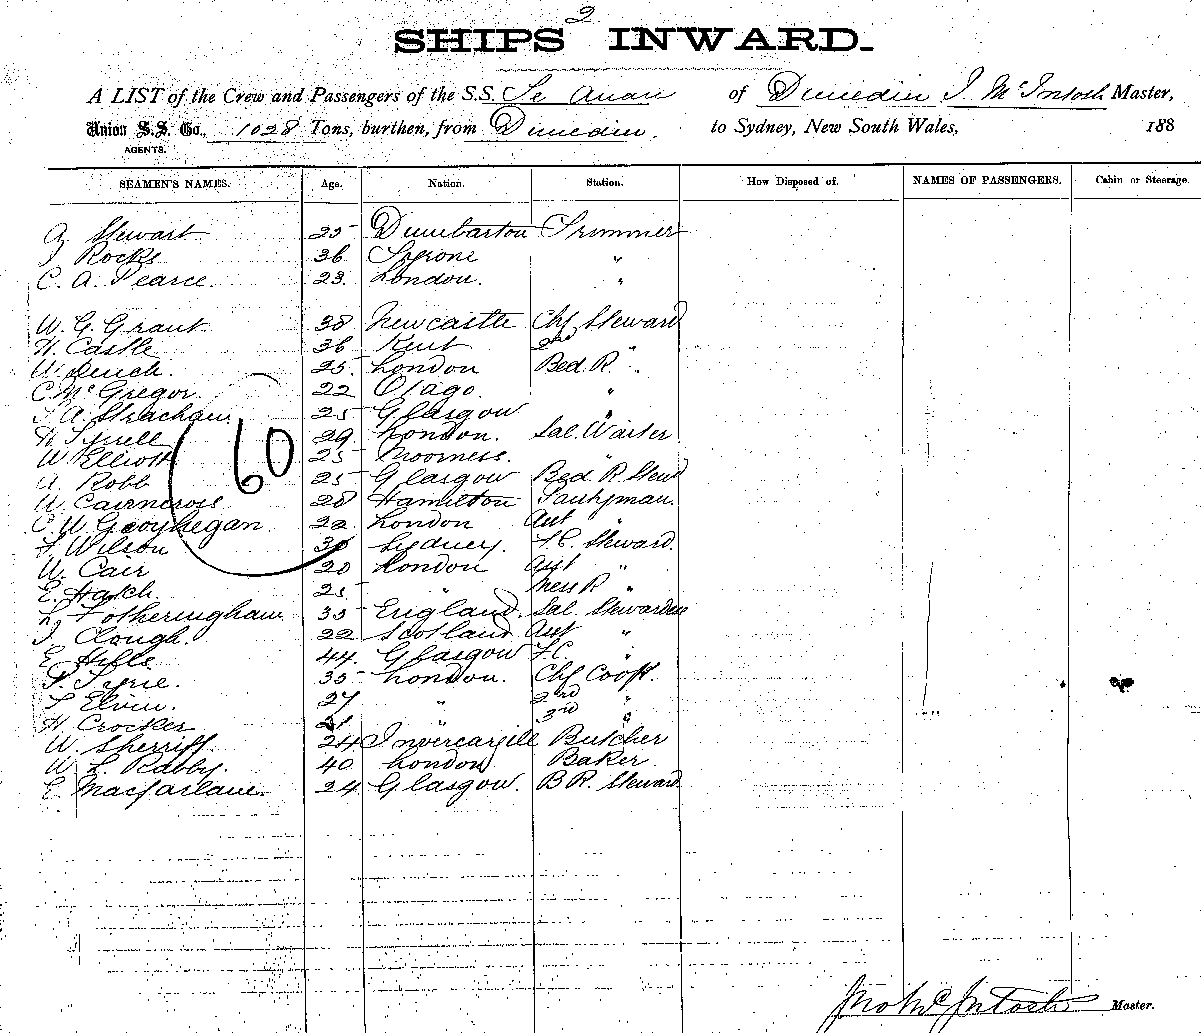 2
SHIPS INWARD.
A LIST of the Crew and Passengers of the S.S. Te Anau of Dunedin J. McIntosh Master,
Union S.S. Co., 1028 Tons, burthen, from Dunedin. to Sydney, New South Wales, 188
AGENTS.
SEAMEN'S NAMES. Age. Nation. Station. How Disposed of. NAMES OF PASSENGERS. Cabin or Steerage.
Stewart 25 Dumbarton Trimmer
J Rocks 36 Tyrone "
C. A. Pearce. 23. London. "
W. G. Grant 38 Newcastle Chf Steward
H. Castle 36 Kent 2nd "
W. 25. London Bed R "
C McGregor. 22 Otago. "
J. A. Strachan. 25 Glasgow "
H Tyrell 29 London. Sal. Waiter
W Elliott 25 "
A Robb 25 Glasgow Bed R Stewd
W Cairncross 28 Hamilton Pantryman.
C. W. Geoyhegan 22 London Asst "
J. Wilson 36 Sydney. F.C. Steward.
W. Cair 20 London Asst "
E. Hatch. 25 " Mess R "
L. Fotheringham 35 England. Sal. Stewardess
J. Clough. 22 Scotland Asst "
E Hills 44. Glasgow F.C. "
P. Pyrie. 35 London. Chf Cook.
Elvin. 27 " 2nd "
H. Crocker 21 " 3rd "
W. Sherriff. 24 Invercargill Butcher
W. L. Rabby. 40 London Baker
E Macfarlane. 24 Glasgow. B R. Steward
60
Jno McIntosh Master.